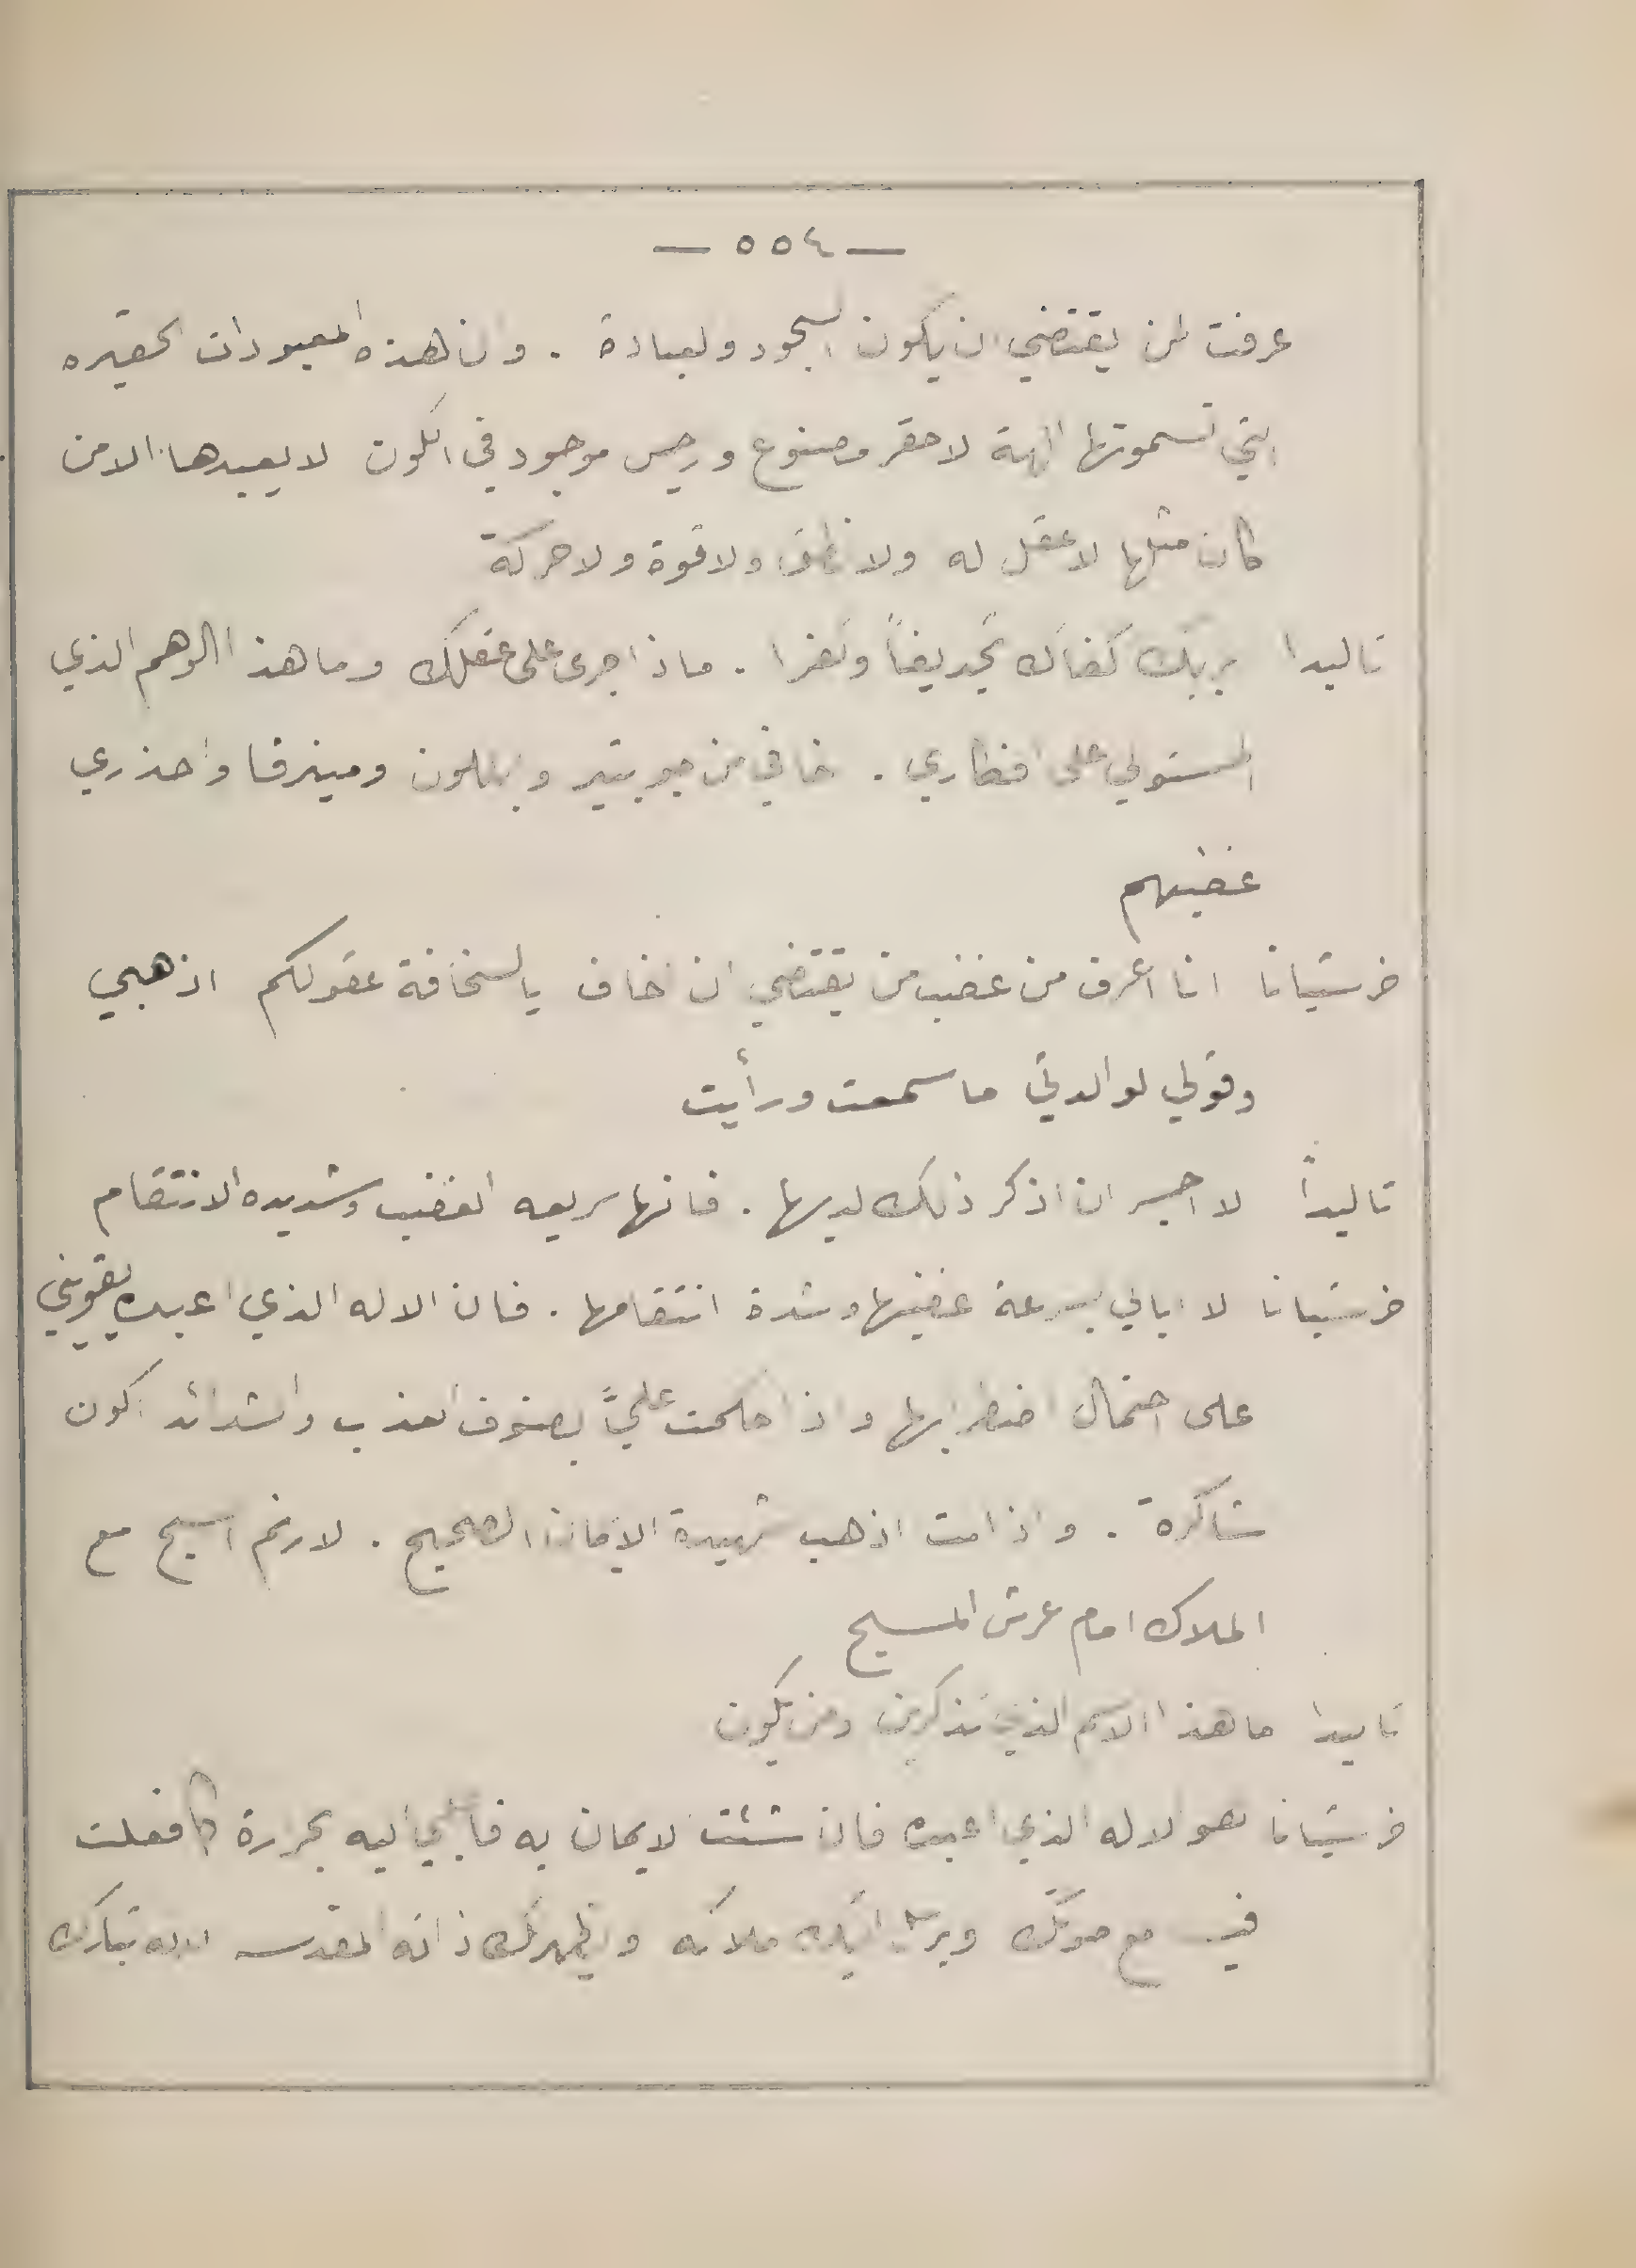 — ٥٥٤ —
عرفت لمن يقتضي ان يكون السجود والعبادة . وان هذه المعبودات الحقيره
التي تسموتها الهة لاحقر مصنوع ورجس موجود في الكون لا يعبدها الا من
كان مثلها لا عقل له ولا نطق ولا قوة ولا حركة
تاليدا بربك كفاك تجديفاً وكفرا . ماذا جرى على عقلك وما هذا الوهم الذي
المستولي على افكاري . خافي من جوبيتير و ومينرفا واحذري
غضبهم
خرستيانا انا اعرف من غضب من يقتضي ان اخاف يالسخافة عقولكم اذهبي
وقولي لوالدتي ما سمعت ورأيت
تاليداً لا اجسر ان اذكر ذلك لديها . فانها سريعه الغضب وشديده الانتقام
خرستيانا لا ابالي بسرعة غضبها وشدة انتقامها . فان الاله الذي اعبده يقويني
على احتمال اضطرابها واذا حكمت عليَّ بصنوف العذاب والشدائد اكون
شاكرة . واذا مت اذهب شهيدة الايمان الصحيح . لارنم اسبح مع
الملاك امام عرش المسيح
تاليدا ما هذا الاسم الذي تذكرين ومن يكون
خرستيانا هو الاله الذي اعبده فان شئت الايمان به فابلجي اليه بحرارة كما فعلت
مع صوتك ويرسل اليك ملاكه ويظهر لك ذاته المقدسه الله تبارك